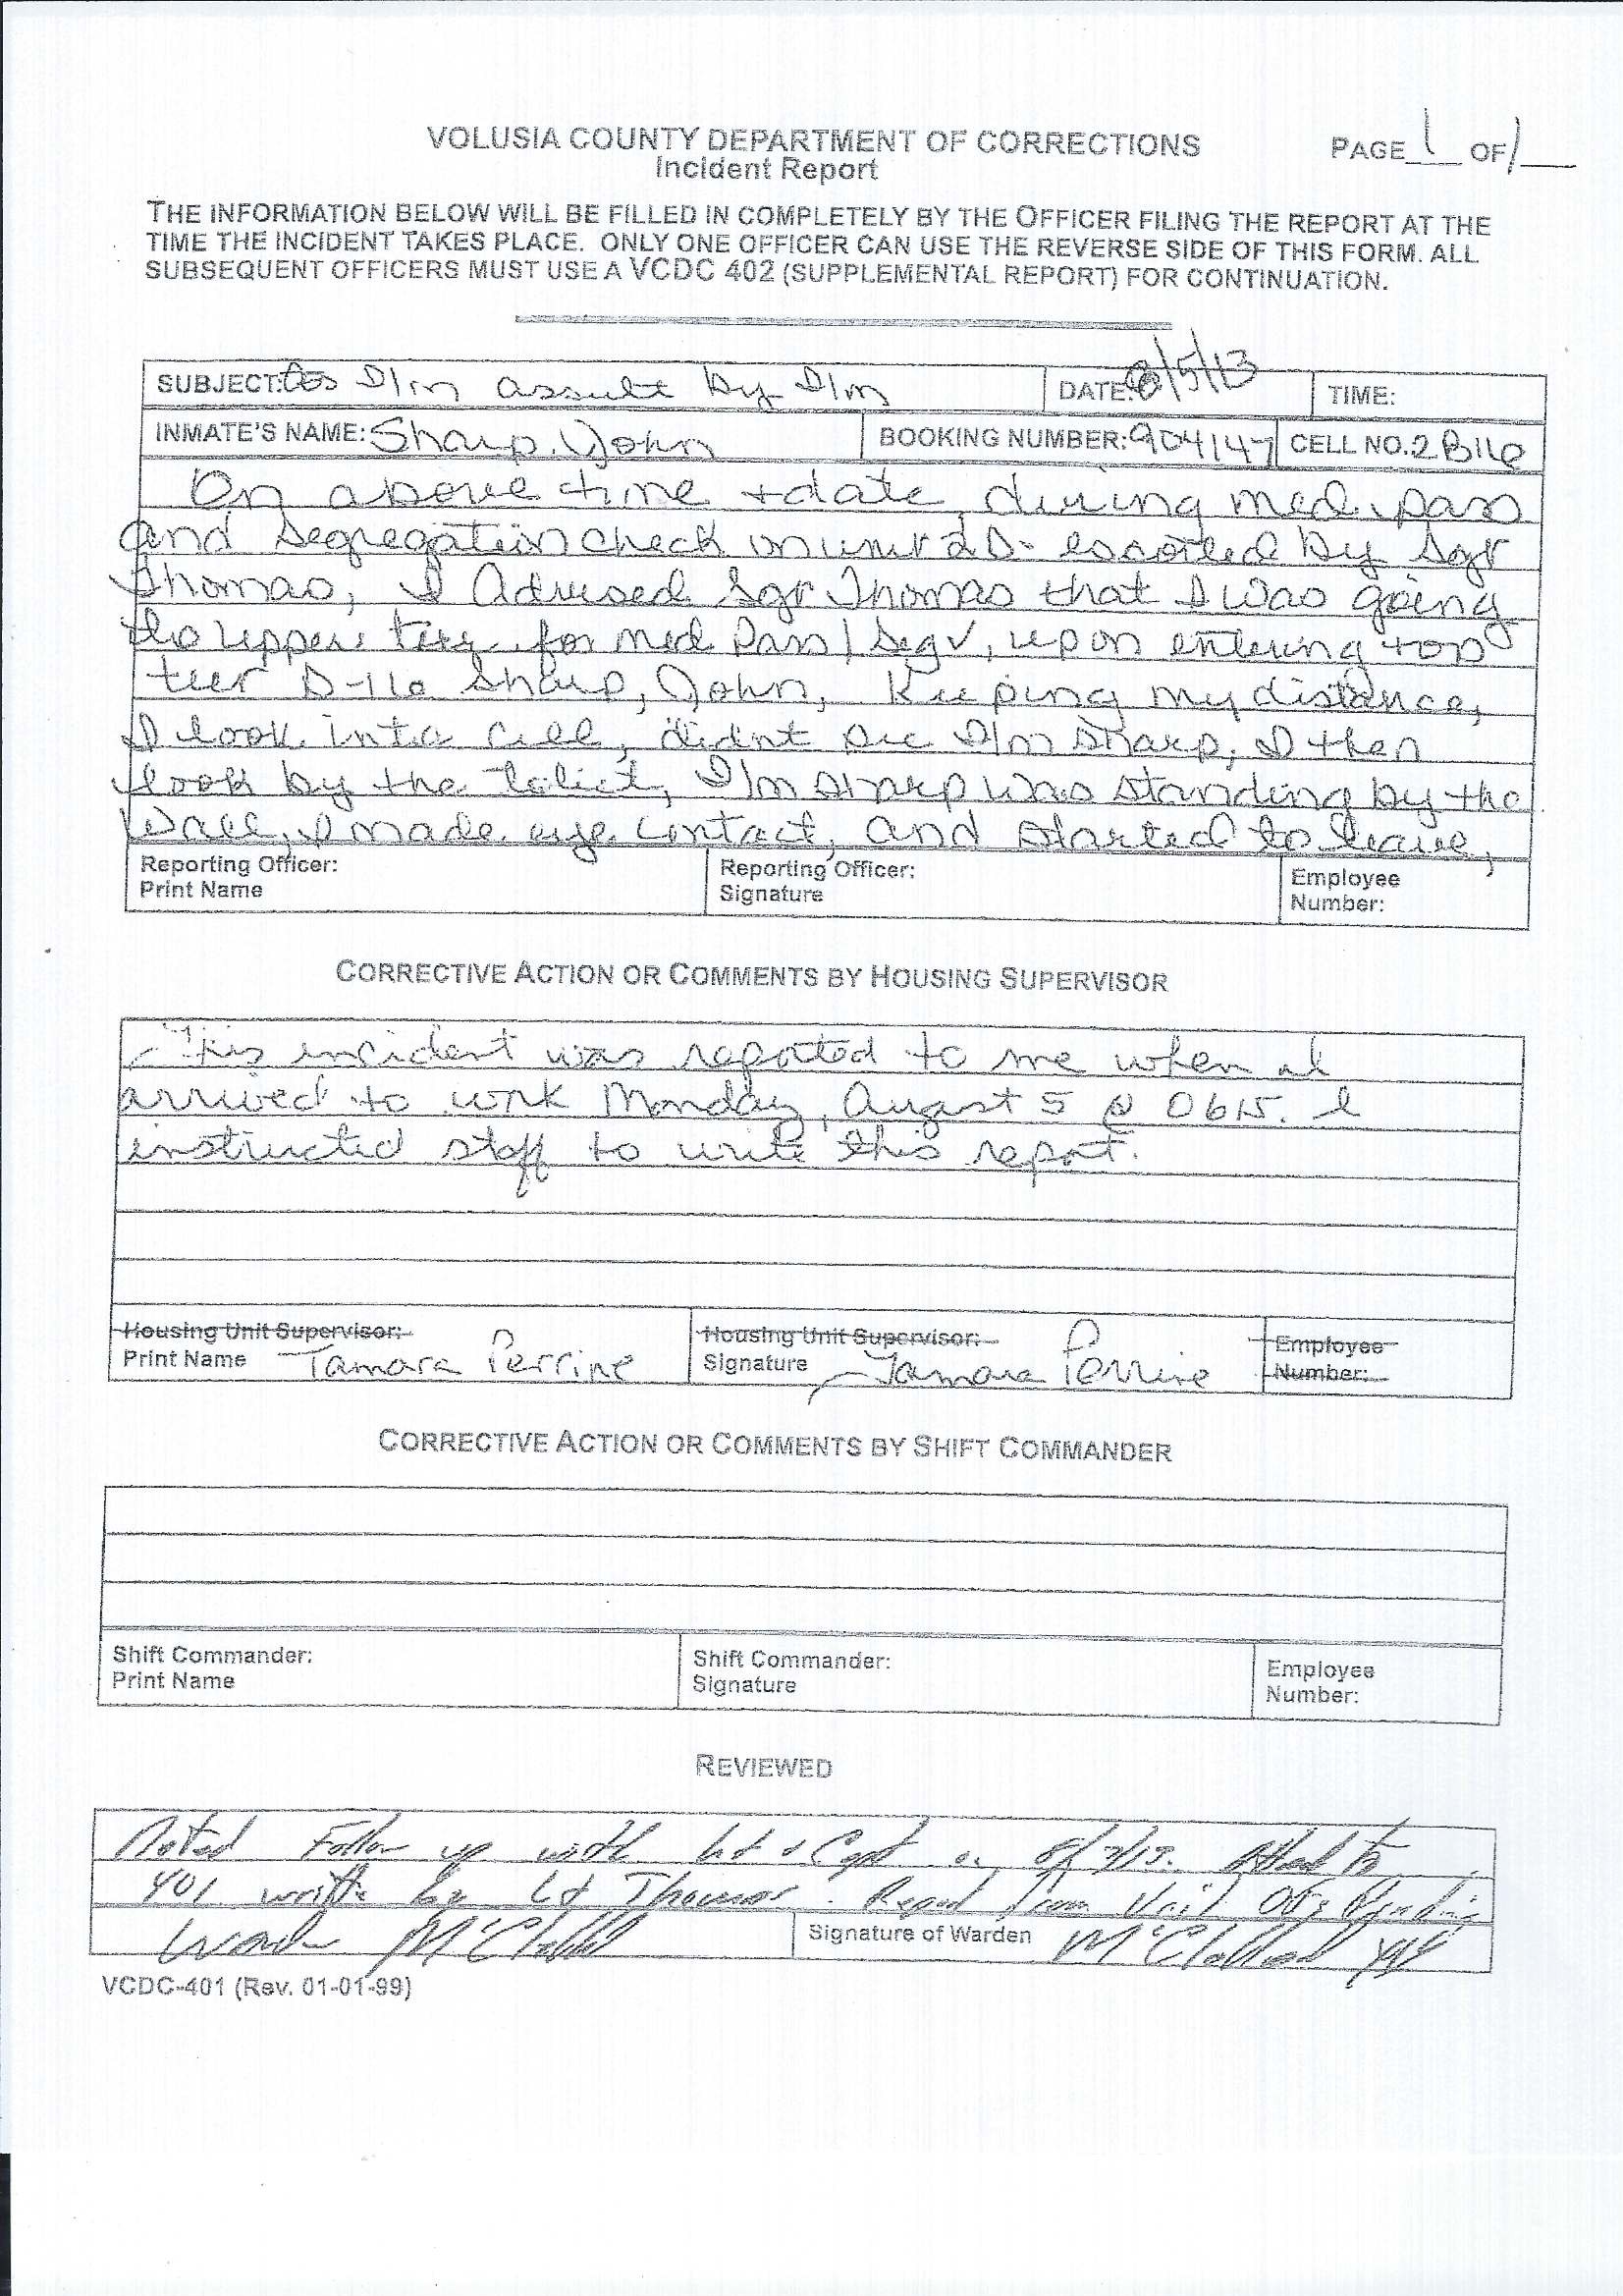 VOLUSIA COUNTY DEPARTMENT OF CORRECTIONS
Incident Report
PAGE 1 OF 1
THE INFORMATION BELOW WILL BE FILLED IN COMPLETELY BY THE OFFICER FILING THE REPORT AT THE
TIME THE INCIDENT TAKES PLACE. ONLY ONE OFFICER CAN USE THE REVERSE SIDE OF THIS FORM. ALL
SUBSEQUENT OFFICERS MUST USE A VCDC 402 (SUPPLEMENTAL REPORT) FOR CONTINUATION.
SUBJECT: I/m assult by I/m DATE: 8/5/13 TIME:
INMATE'S NAME: Sharp, John BOOKING NUMBER: 904147 CELL NO. 2B16
On above time + date, during med pass
and segregation check on unit 2D- escorted by Sgt
Thomas, I Advised Sgt Thomas that I was going
upper tier for med pass/Seg √, upon entering top
tier D-16 Sharp, John, Keeping my distance,
I look into cell, didnt see I/m Sharp, I then
look by the toliet, I/m Sharp was standing by the
wall, I made eye contact, and started to leave,
Reporting Officer:
Print Name
Reporting Officer:
Signature
Employee
Number:
CORRECTIVE ACTION OR COMMENTS BY HOUSING SUPERVISOR
This incident was reported to me when I
arrived to work Monday, August 5 @ 0615. I
instructed staff to write this report.
Housing Unit Supervisor:
Print Name Tamara Perrine
Housing Unit Supervisor:
Signature Tamara Perrine
Employee
Number:
CORRECTIVE ACTION OR COMMENTS BY SHIFT COMMANDER
Shift Commander:
Print Name
Shift Commander:
Signature
Employee
Number:
REVIEWED
Noted Follow up with Lt & Capt on 8/7/13. to
401 written by Lt Thomas. Report from Unit Pending
Warden McClelland Signature of Warden McClelland
VCDC-401 (Rev. 01-01-99)